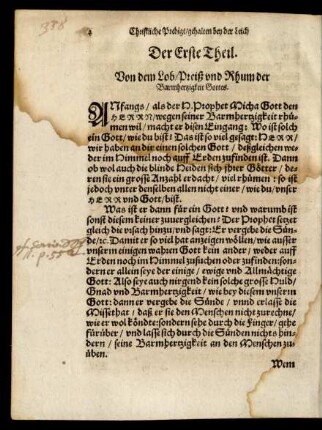 338
Christliche Predigt/gehalten bey der Leich
Der Erste Theil.
Von dem Lob/Preiß vnd Rhum der
Barmhertzigkeit Gottes.
ANfangs/als der H.Prophet Micha Gott den
HERRN/wegen seiner Barmhertzigkeit rhü-
men wil/macht er disen Eingang: Wo ist solch
ein Gott/wie du bist? Das ist so viel gesagt: HERR/
wir haben an dir einen solchen Gott/deßgleichen we-
der im Himmel noch auff Erden zufinden ist. Dann
ob wol auch die blinde Heiden sich jhrer Götter/de-
ren sie ein grosse Anzahl erdacht/viel rhümen: so ist
jedoch vnter denselben allen nicht einer/wie du/vnser
HERR vnd Gott/bist.
Was ist er dann für ein Gott? vnd warumb ist
sonst diesem keiner zuuergleichen? Der Prophet setzet
gleich die vrsach hinzu/vnd sagt: Er vergebe die Sün-
de/ꝛc. Damit er so viel hat anzeigen wöllen/wie ausser
vnserm einigen wahren Gott kein ander/weder auff
Erden noch im Himmel zusuchen oder zufinden: son-
dern er allein seye der einige/ewige vnd Allmächtige
Gott: Also seye auch nirgend kein solche grosse Huld/
Gnad vnd Barmhertzigkeit/wie bey diesem vnserm
Gott: dann er vergebe die Sünde/vnnd erlasse die
Missethat/daß er sie den Menschen nicht zurechne/
wie er wol köndte: sondern sehe durch die Finger/gehe
fürüber/vnd lasse sich durch die Sünden nichts hin-
dern/seine Barmhertzigkeit an den Menschen zu-
üben.
Wem